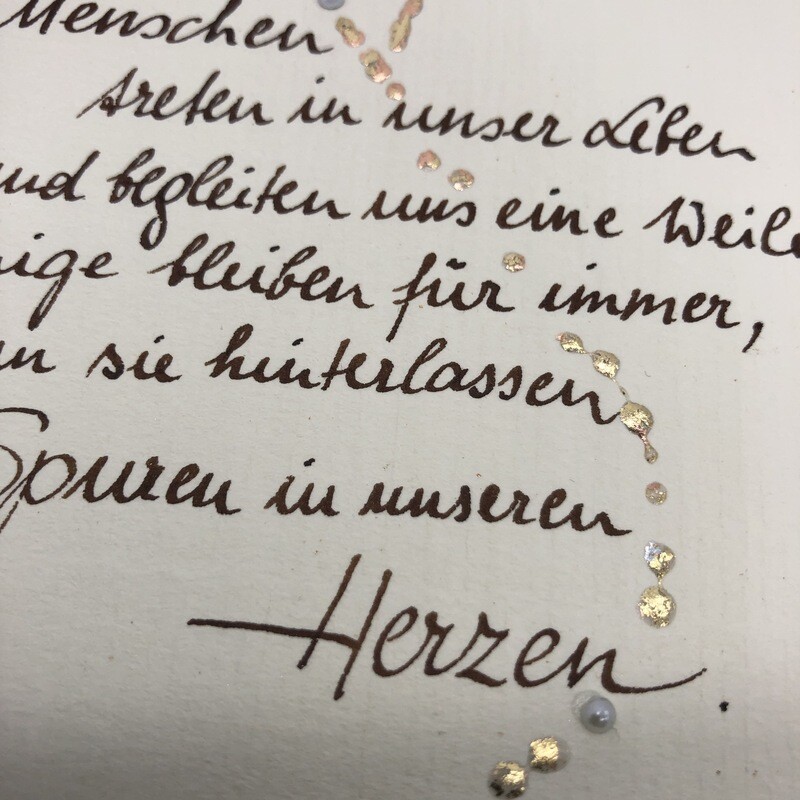 Menschen
treten in unser Leben
und begleiten uns eine Weile
nige bleiben für immer,
nn sie hinterlassen
Spuren in unseren
Herzen.